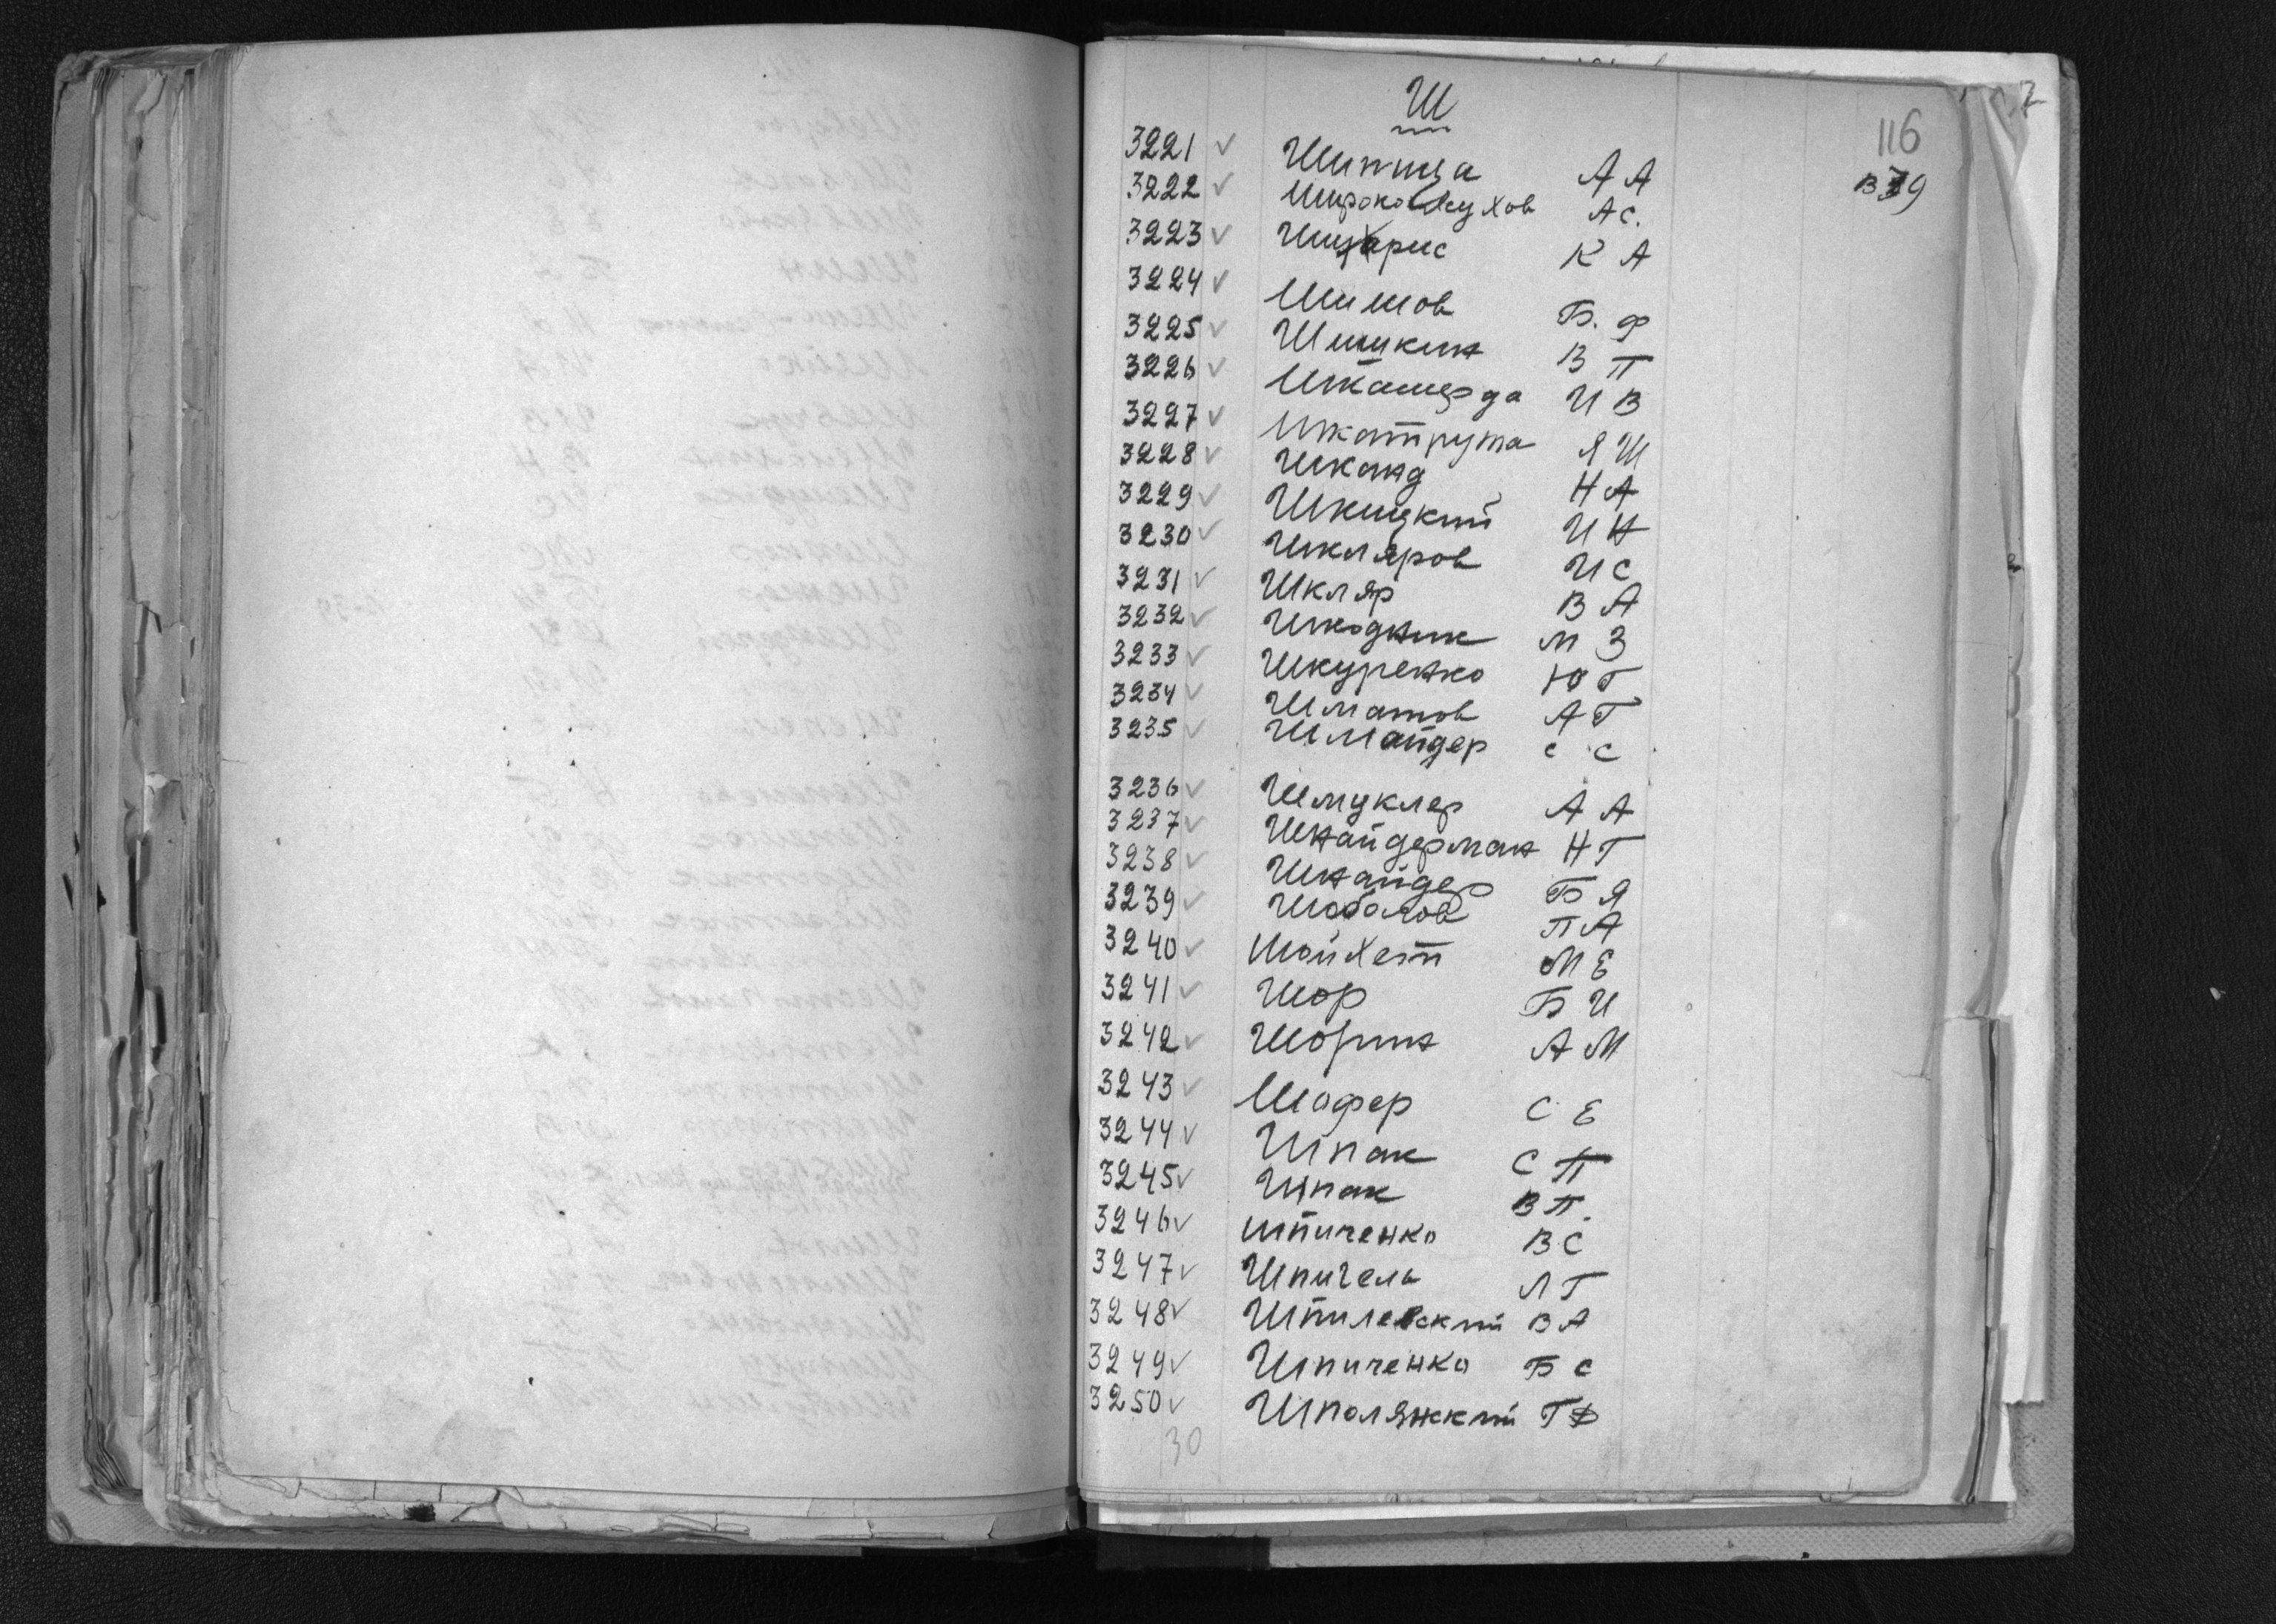 Ш
116
3221 ✓ Шипица А А В 39
3222 ✓ Широкоухов А С.
3223 ✓ К А
3224 ✓ Шишов Б. Ф
3225 ✓ Шишкин В П
3226 ✓ Шкамерда И В
3227 ✓ Шкатрута Я Ш
3228 ✓ Шканд Н А
3229 ✓ Шкицкий И Н
3230 ✓ Шкляров И С
3231 ✓ Шкляр В А
3232 ✓ Шкодник М З
3233 ✓ Шкуренко Ю Г
3234 ✓ Шматов А Г
3235 ✓ Шмайдер С С
3236 ✓ Шмуклер А А
3237 ✓ Шнайдерман Н Г
3238 ✓ Шнайдер Б Я
3239 ✓ Шоболов П А
3240 ✓ Шойхет М Е
3241 ✓ Шор Б И
3242 ✓ Шорин А М
3243 ✓ Шофер С Е
3244 ✓ Шпак С П
3245 ✓ Шпак В П.
3246 ✓ Шпиченко В С
3247 ✓ Шпигель Л Г
3248 ✓ Шпилевский В А
3249 ✓ Шпиченко Б С
3250 ✓ Шполянский Г Ф
30